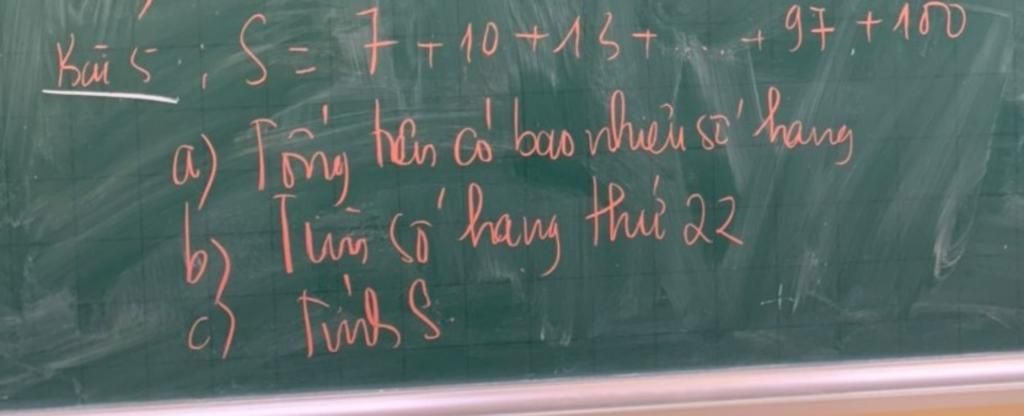 Bài 5 : S = 7 + 10 + 13 + .... + 97 + 100
a) Tổng trên có bao nhiêu số hạng
b) Tìm số hạng thứ 22
c) Tính S.